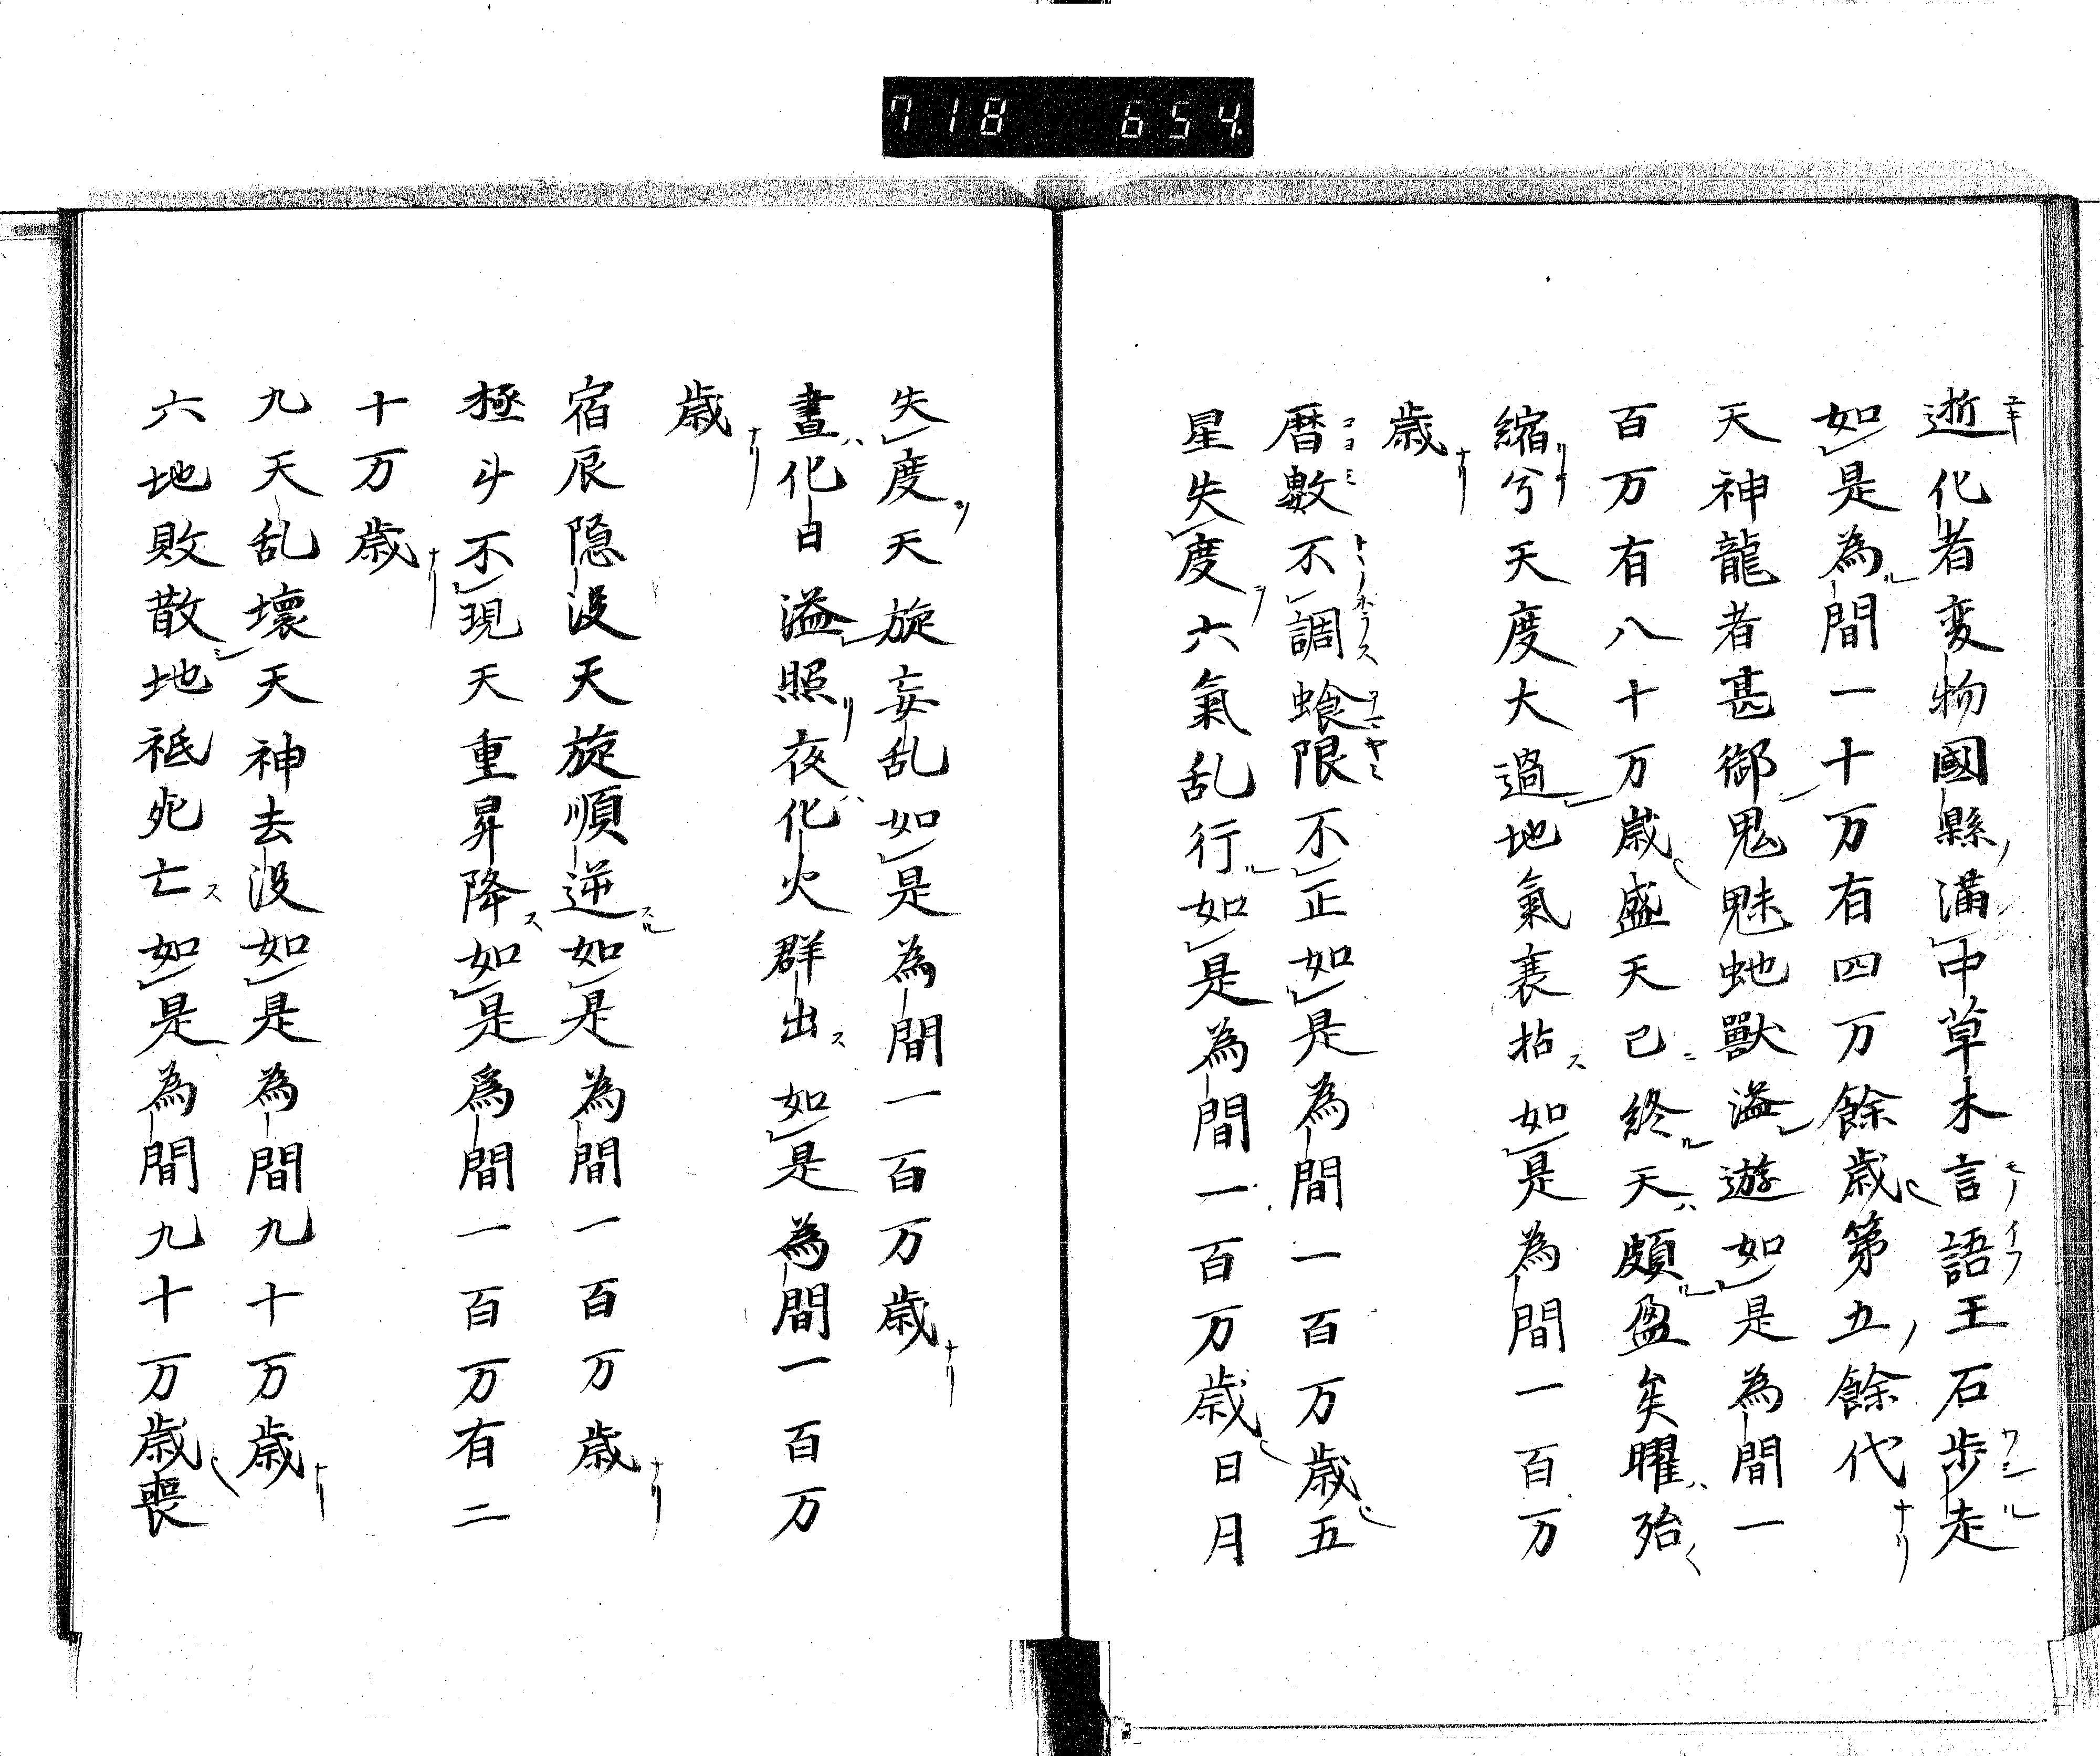 718 654
逝化者変物國縣満中草木言語王石歩走
如是為間一十万有四万餘歳第五餘代
天神龍者甚御鬼魅虵獸溢遊如是為間一
百万有八十万歳盛天已終天頗盈矣曜殆
縮兮天度大過地氣衰拈如是為間一百万
歳
暦數不調蝕限不正如是為間一百万歳五
星失度六氣乱行如是為間一百万歳日月
失度天旋妄乱如是為間一百万歳
晝化日溢照夜化火群出如是為間一百万
歳
宿辰隠没天旋順逆如是為間一百万歳
極斗不現天重昇降如是為間一百万有二
十万歳
九天乱壞天神去没如是為間九十万歳
六地敗散地祗死亡如是為間九十万歳喪